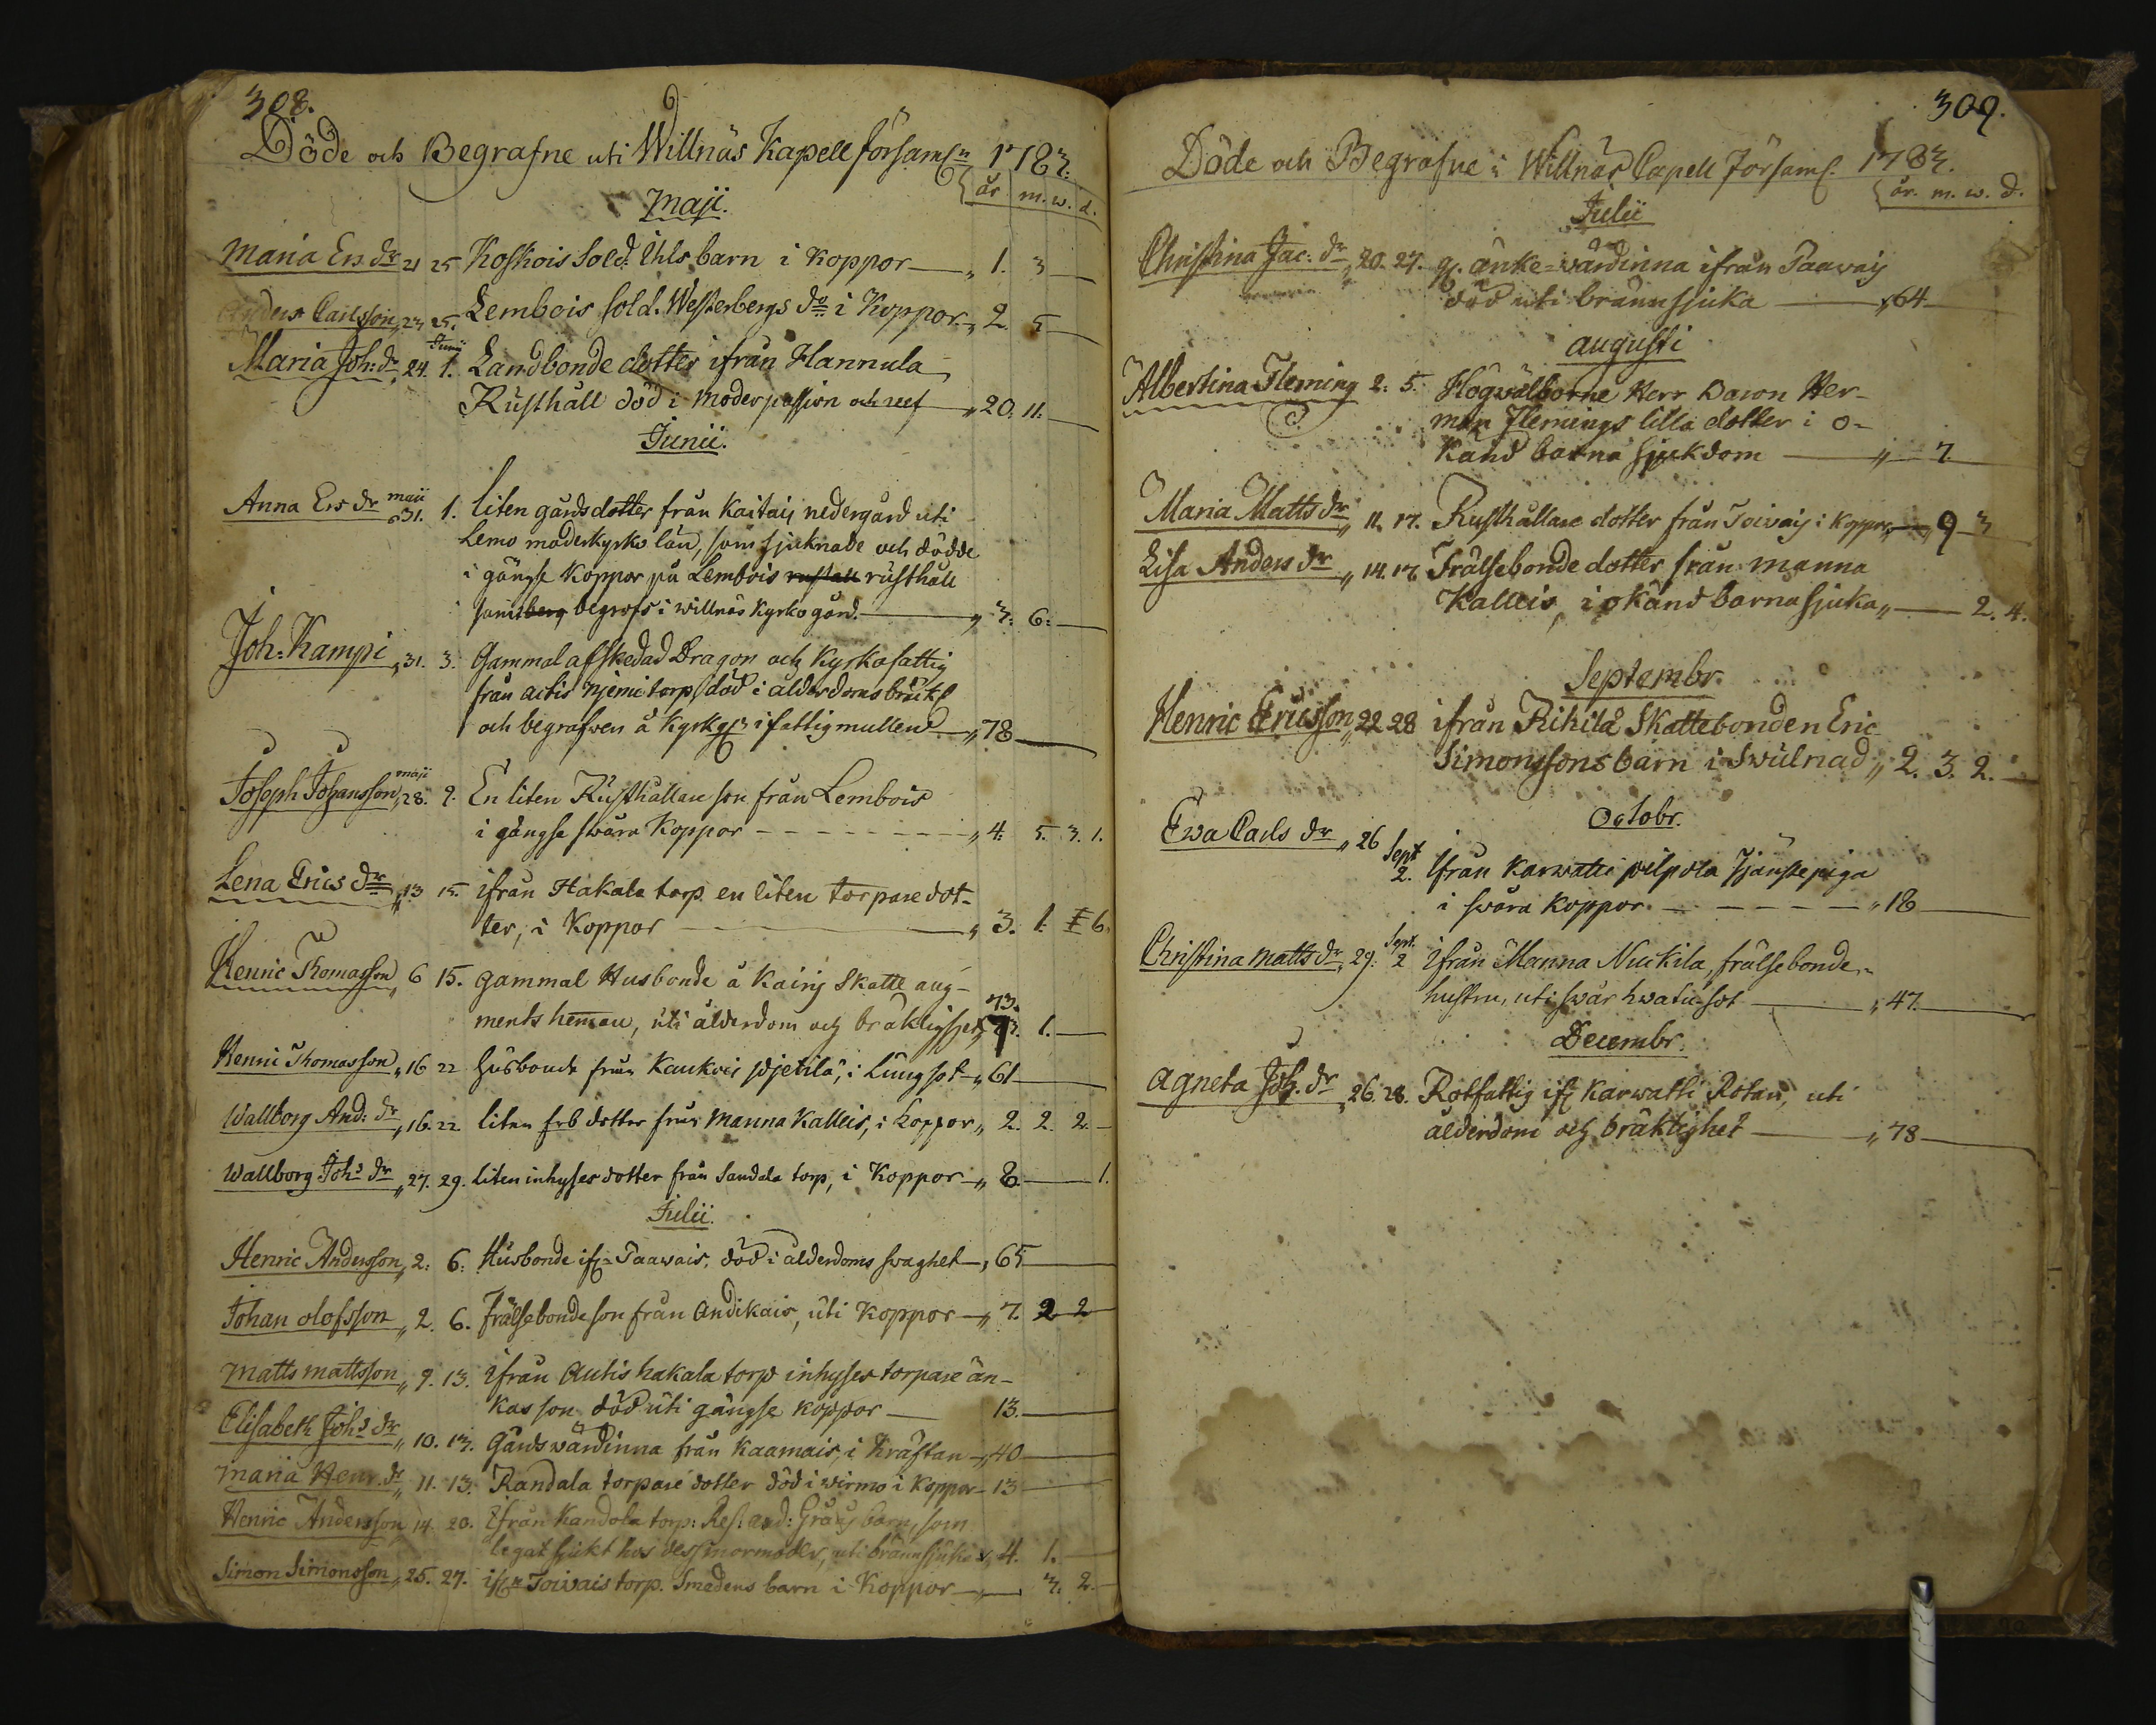 308.
Döde och Begrafne uti Willnäs Kapell församln 1783.
år m. w. d.
Maji.
Maria Ers dr „ 21 25 Koskois Sold. Uhls barn i Koppor — „ 1. 3 —
Anders Carlsson „ 23 25. Lembois sold. Westerbergs do i Koppor „ 2. 5 —
Maria Joh: dr „ 24. Junii 1. Landbonde dotter ifrån Hannula
Rusthåll död i moderpassion och reef — „ 20. 11. —
Junii.
Anna Ers dr maii 31. 1. liten gårdsdotter från Kaitais nedergård uti
Lemo moderkyrko län, som sjuknade och dödde
i gängse Koppor på Lembois rusthåll
begrofs i willnäs Kyrkogård. — „ 3. 6. —
Joh. Kampi „ 31. 3. Gammal afskedad Dragon och Kyrkofattig
från autis njemi torp, död i ålderdoms bräckl
och begrafwen å Kyrkog i fattigmullen — „ 78 —
Joseph Johansson maji „ 28. 9. En liten Rusthållare son från Lembois
i gängse swåra Koppor - - - - - „ 4. 5. 3. 1.
Lena Erics dr „ 13 15. ifrån Hakala torp en liten torpare dot-
ter, i Koppor — „ 3. 1. 6.
Henric Thomasson „ 6 15. gammal Husbonde å Kairis Skatte aug-
ments heman, uti ålderdom och bräklighet „ 73. 1. —
Henric Thomasson „ 16 22 husbonde från Kaukois pjetilä, i Lungsot — „ 61 —
Wallborg And: dr „ 16. 22. liten frb dotter från Manna Kalleis, i Koppor „ 2. 2. 2. —
Wallborg Johs dr „ 27. 29. liten inhyses dotter från Sandala torp, i Koppor — „ 8. — 1.
Julii.
Henric Andersson „ 2. 6. Husbonde ifn Taawais, död i ålderdoms swaghet — „ 65 —
Johan olofsson „ 2. 6. frälsebonde son från Andikais, uti Koppor — „ 7. 2 2
Matts mattsson „ 9. 13. ifrån Autis hakala torp inhyses torpare än-
kas son död uti gängse koppor — 13. —
Elisabeth Johs dr „ 10. 13. Gårdswärdinna från Kaamais, i kräftan — „ 40 —
Maria Henr. dr „ 11. 13. Kandala torpare dotter död i wirmo i Koppor — 13 —
Henric Andersson 14. 20. ifrån Kandala torp: And: barn, som
legat sjukt hos dess mormoder, uti brännsjuka „ 4. 1. —
Simon Simonsson „ 25. 27. ifrn Toiwais torp. Smedens barn i Koppor — „ — 3. 2. —
309.
Döde och Begrafne i Willnäs Capell Församl. 1783.
år. m. w. d.
Julii
Christina Jac: dr „ 20. 27. gl. änke-wärdinna ifrån Taawais
död uti brännsjuka — „ 64 —
augusti
Albertina Fleming 2. 5. Högwälborne Herr Baron Her-
man Flemings lilla dotter i o-
känd barna sjukdom — „ — 7. —
Maria Matts dr „ 11. 17. Rusthållare dotter från Toiwais i Koppor — „ 9 3
Lisa Anders dr „ 14. 17. Frälsebonde dotter från manna
Kalleis, i okänd barnasjuka „ — 2. 4.
Septembr.
Henric Ericsson „ 22 28 ifrån Rihilä Skattebonden Eric
Simonssons barn i Swulnad „ 2. 3. 2. —
Octobr.
Ewa Carls dr „ 26 Sept 2. ifrån Karwatti pilpola Tjänstepiga
i swåra Koppor. - - - - „ 18 —
Christina Matts dr „ 29. Sept. 2 ifrån Manna Nuckila, frälsebonde
hustru, uti swår hwatu-sot — „ 47. —
Decembr.
Agneta Joh. dr „ 26. 28. Rotfattig ifn Karwatti Rotan, uti
ålderdom och bräklighet — „ 78 —